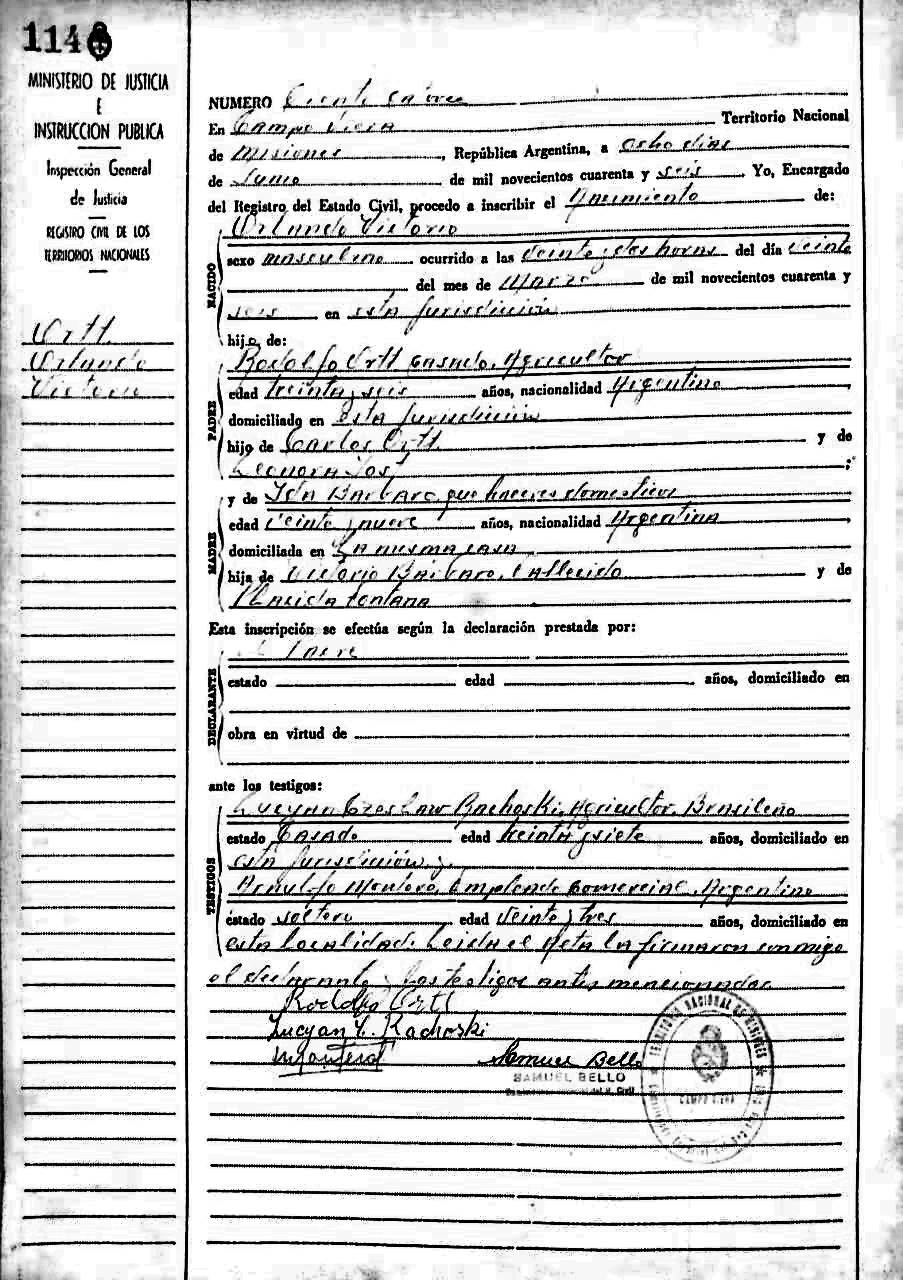 114
MINISTERIO DE JUSTICIA
E
INSTRUCCION PUBLICA
Inspección General
de Justicia
REGISTRO CIVIL DE LOS
TERRITORIOS NACIONALES
Ortt
Orlando
Victorio
NUMERO Ciento catorce
En Campo Viera Territorio Nacional
de Misiones, República Argentina, a ocho dias
de Junio de mil novecientos cuarenta y seis. Yo, Encargado
del Registro del Estado Civil, procedo a inscribir el Nacimiento de:
NACIDO
Orlando Victorio
sexo masculino ocurrido a las veinte y dos horas del día veinte
del mes de Marzo de mil novecientos cuarenta y
seis en esta Jurisdicción
hijo de:
PADRE
Rodolfo Ortt casado, Agricultor
edad treinta y seis años, nacionalidad Argentino
domiciliado en esta Jurisdicción
hijo de Carlos Ortt y de
Leonora ;
MADRE
y de Ida Barbaro, que haceres domesticos
edad veinte y nueve años, nacionalidad Argentina
domiciliada en La misma casa
hija de Victorio Barbaro, fallecido y de
Placida Fontana
Esta inscripción se efectúa según la declaración prestada por:
DECLARANTE
el Padre
estado edad años, domiciliado en
obra en virtud de
ante los testigos:
TESTIGOS
Lucyan Czeslaw Rachoski, Agricultor, Brasileño
estado Casado edad treinta y siete años, domiciliado en
esta Jurisdicción y
Arnulfo Montero, Empleado comercial, Argentino
estado soltero edad veinte y tres años, domiciliado en
esta Localidad. Leida el Acta la firmaron conmigo
el declarante y los testigos antes mencionados
Rodolfo Ortt
Lucyan C. Rachoski
Samuel Bello
SAMUEL BELLO
TERRITORIO NACIONAL DE MISIONES
CAMPO VIERA